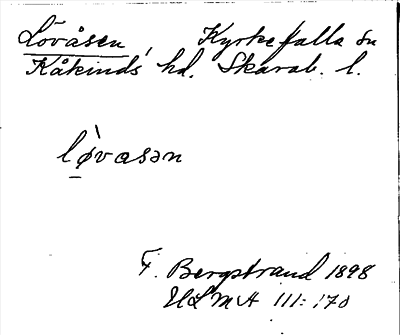 Lövåsen, Kyrkefalla sn
Kåkinds hd. Skarab. l.
lø̀vasən
F. Bergstrand 1898
ULMA 111:170